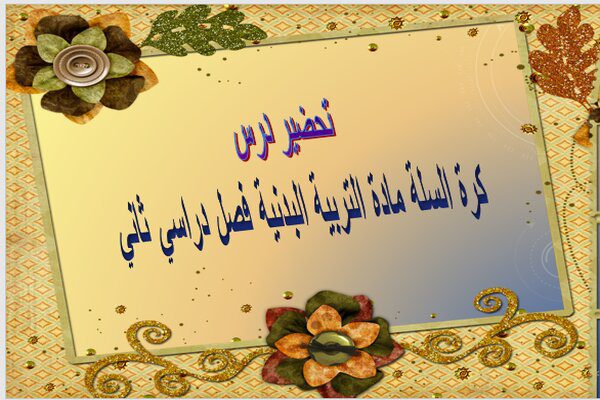 تحضير درس
كرة السلة مادة التربية البدنية فصل دراسي ثاني